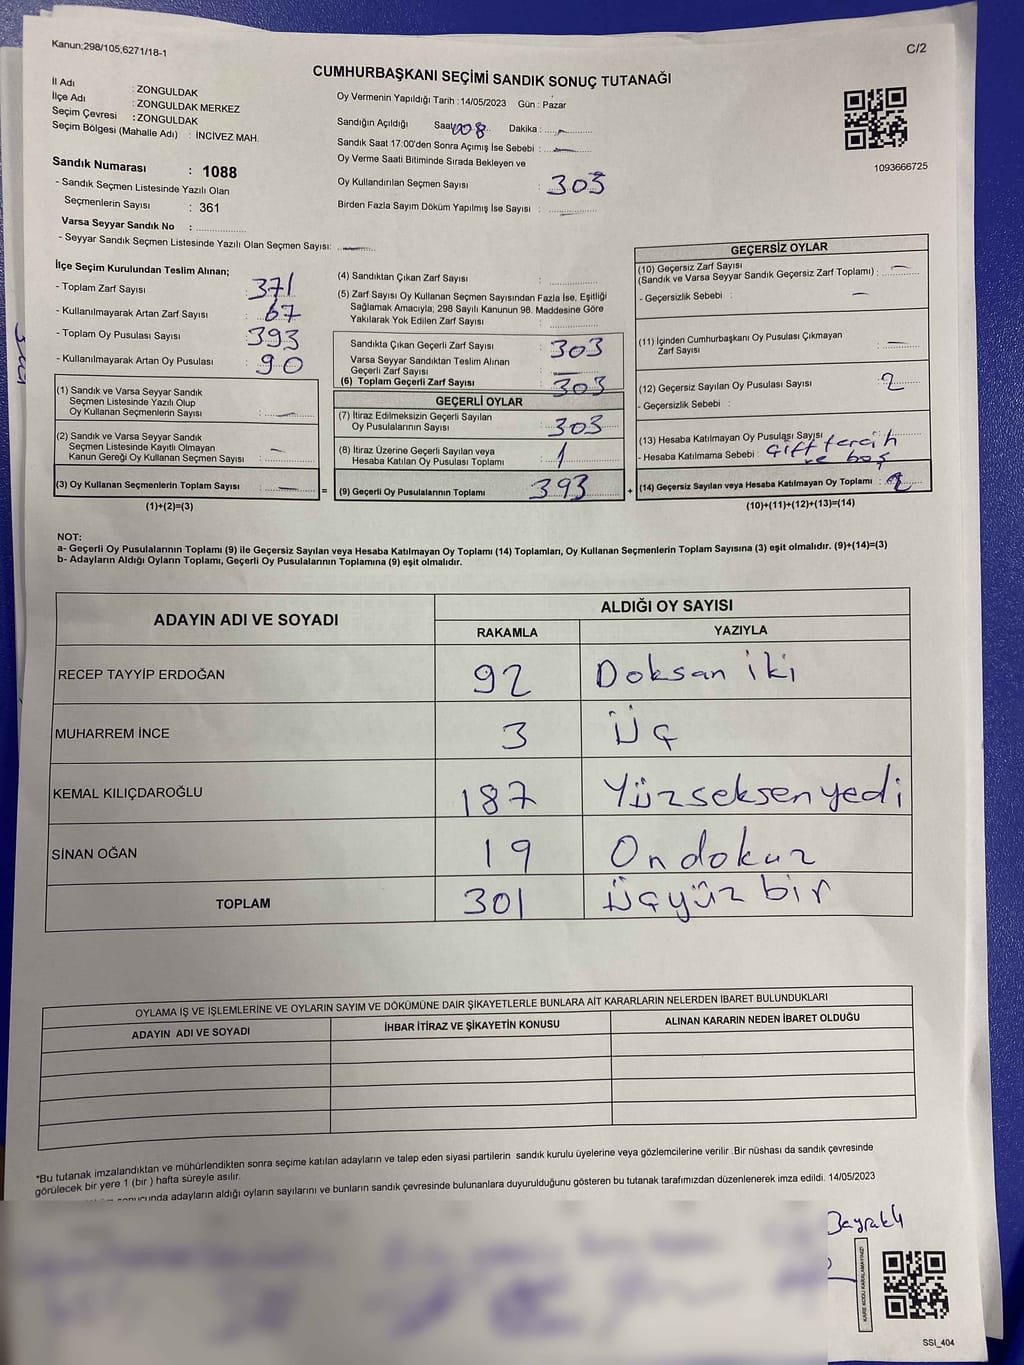 Kanun;298/105;6271/18-1
C/2
CUMHURBAŞKANI SEÇİMİ SANDIK SONUÇ TUTANAĞI
İl Adı : ZONGULDAK
İlçe Adı : ZONGULDAK MERKEZ
Seçim Çevresi : ZONGULDAK
Seçim Bölgesi (Mahalle Adı) : İNCİVEZ MAH.
Oy Vermenin Yapıldığı Tarih : 14/05/2023 Gün : Pazar
Sandığın Açıldığı Saat Dakika :
Sandık Saat 17:00'den Sonra Açımış İse Sebebi :
Oy Verme Saati Bitiminde Sırada Bekleyen ve
Oy Kullandırılan Seçmen Sayısı : 303
Birden Fazla Sayım Döküm Yapılmış İse Sayısı :
1093666725
Sandık Numarası : 1088
- Sandık Seçmen Listesinde Yazılı Olan
Seçmenlerin Sayısı : 361
Varsa Seyyar Sandık No :
- Seyyar Sandık Seçmen Listesinde Yazılı Olan Seçmen Sayısı:
İlçe Seçim Kurulundan Teslim Alınan;
- Toplam Zarf Sayısı : 371
- Kullanılmayarak Artan Zarf Sayısı : 67
- Toplam Oy Pusulası Sayısı : 393
- Kullanılmayarak Artan Oy Pusulası : 90
(1) Sandık ve Varsa Seyyar Sandık
Seçmen Listesinde Yazılı Olup
Oy Kullanan Seçmenlerin Sayısı :
(2) Sandık ve Varsa Seyyar Sandık
Seçmen Listesinde Kayıtlı Olmayan
Kanun Gereği Oy Kullanan Seçmen Sayısı :
(3) Oy Kullanan Seçmenlerin Toplam Sayısı : =
(1)+(2)=(3)
(4) Sandıktan Çıkan Zarf Sayısı :
(5) Zarf Sayısı Oy Kullanan Seçmen Sayısından Fazla İse, Eşitliği
Sağlamak Amacıyla; 298 Sayılı Kanunun 98. Maddesine Göre
Yakılarak Yok Edilen Zarf Sayısı :
Sandıkta Çıkan Geçerli Zarf Sayısı : 303
Varsa Seyyar Sandıktan Teslim Alınan
Geçerli Zarf Sayısı :
(6) Toplam Geçerli Zarf Sayısı : 303
GEÇERLİ OYLAR
(7) İtiraz Edilmeksizin Geçerli Sayılan
Oy Pusulalarının Sayısı : 303
(8) İtiraz Üzerine Geçerli Sayılan veya
Hesaba Katılan Oy Pusulası Toplamı : 1
(9) Geçerli Oy Pusulalarının Toplamı : 393 +
GEÇERSİZ OYLAR
(10) Geçersiz Zarf Sayısı
(Sandık ve Varsa Seyyar Sandık Geçersiz Zarf Toplamı) :
- Geçersizlik Sebebi :
(11) İçinden Cumhurbaşkanı Oy Pusulası Çıkmayan
Zarf Sayısı :
(12) Geçersiz Sayılan Oy Pusulası Sayısı : 2
- Geçersizlik Sebebi :
(13) Hesaba Katılmayan Oy Pusulası Sayısı :
- Hesaba Katılmama Sebebi : Çift tercih
ve boş
(14) Geçersiz Sayılan veya Hesaba Katılmayan Oy Toplamı : 2
(10)+(11)+(12)+(13)=(14)
NOT:
a- Geçerli Oy Pusulalarının Toplamı (9) ile Geçersiz Sayılan veya Hesaba Katılmayan Oy Toplamı (14) Toplamları, Oy Kullanan Seçmenlerin Toplam Sayısına (3) eşit olmalıdır. (9)+(14)=(3)
b- Adayların Aldığı Oyların Toplamı, Geçerli Oy Pusulalarının Toplamına (9) eşit olmalıdır.
ADAYIN ADI VE SOYADI ALDIĞI OY SAYISI
RAKAMLA YAZIYLA
RECEP TAYYİP ERDOĞAN 92 Doksan iki
MUHARREM İNCE 3 Üç
KEMAL KILIÇDAROĞLU 187 Yüzseksenyedi
SİNAN OĞAN 19 Ondokuz
TOPLAM 301 Üçyüz bir
OYLAMA İŞ VE İŞLEMLERİNE VE OYLARIN SAYIM VE DÖKÜMÜNE DAİR ŞİKAYETLERLE BUNLARA AİT KARARLARIN NELERDEN İBARET BULUNDUKLARI
ADAYIN ADI VE SOYADI İHBAR İTİRAZ VE ŞİKAYETİN KONUSU ALINAN KARARIN NEDEN İBARET OLDUĞU
*Bu tutanak imzalandıktan ve mühürlendikten sonra seçime katılan adayların ve talep eden siyasi partilerin sandık kurulu üyelerine veya gözlemcilerine verilir. Bir nüshası da sandık çevresinde
görülecek bir yere 1 (bir) hafta süreyle asılır.
sonucunda adayların aldığı oyların sayılarını ve bunların sandık çevresinde bulunanlara duyurulduğunu gösteren bu tutanak tarafımızdan düzenlenerek imza edildi. 14/05/2023
Bayraklı
KARE KODU KARALAMAYINIZ!
SSI_404